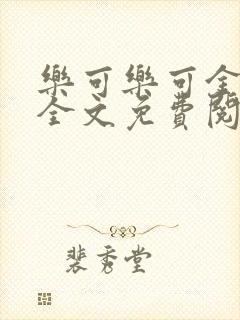 樂可樂可全
全文免費閱
裴秀堂